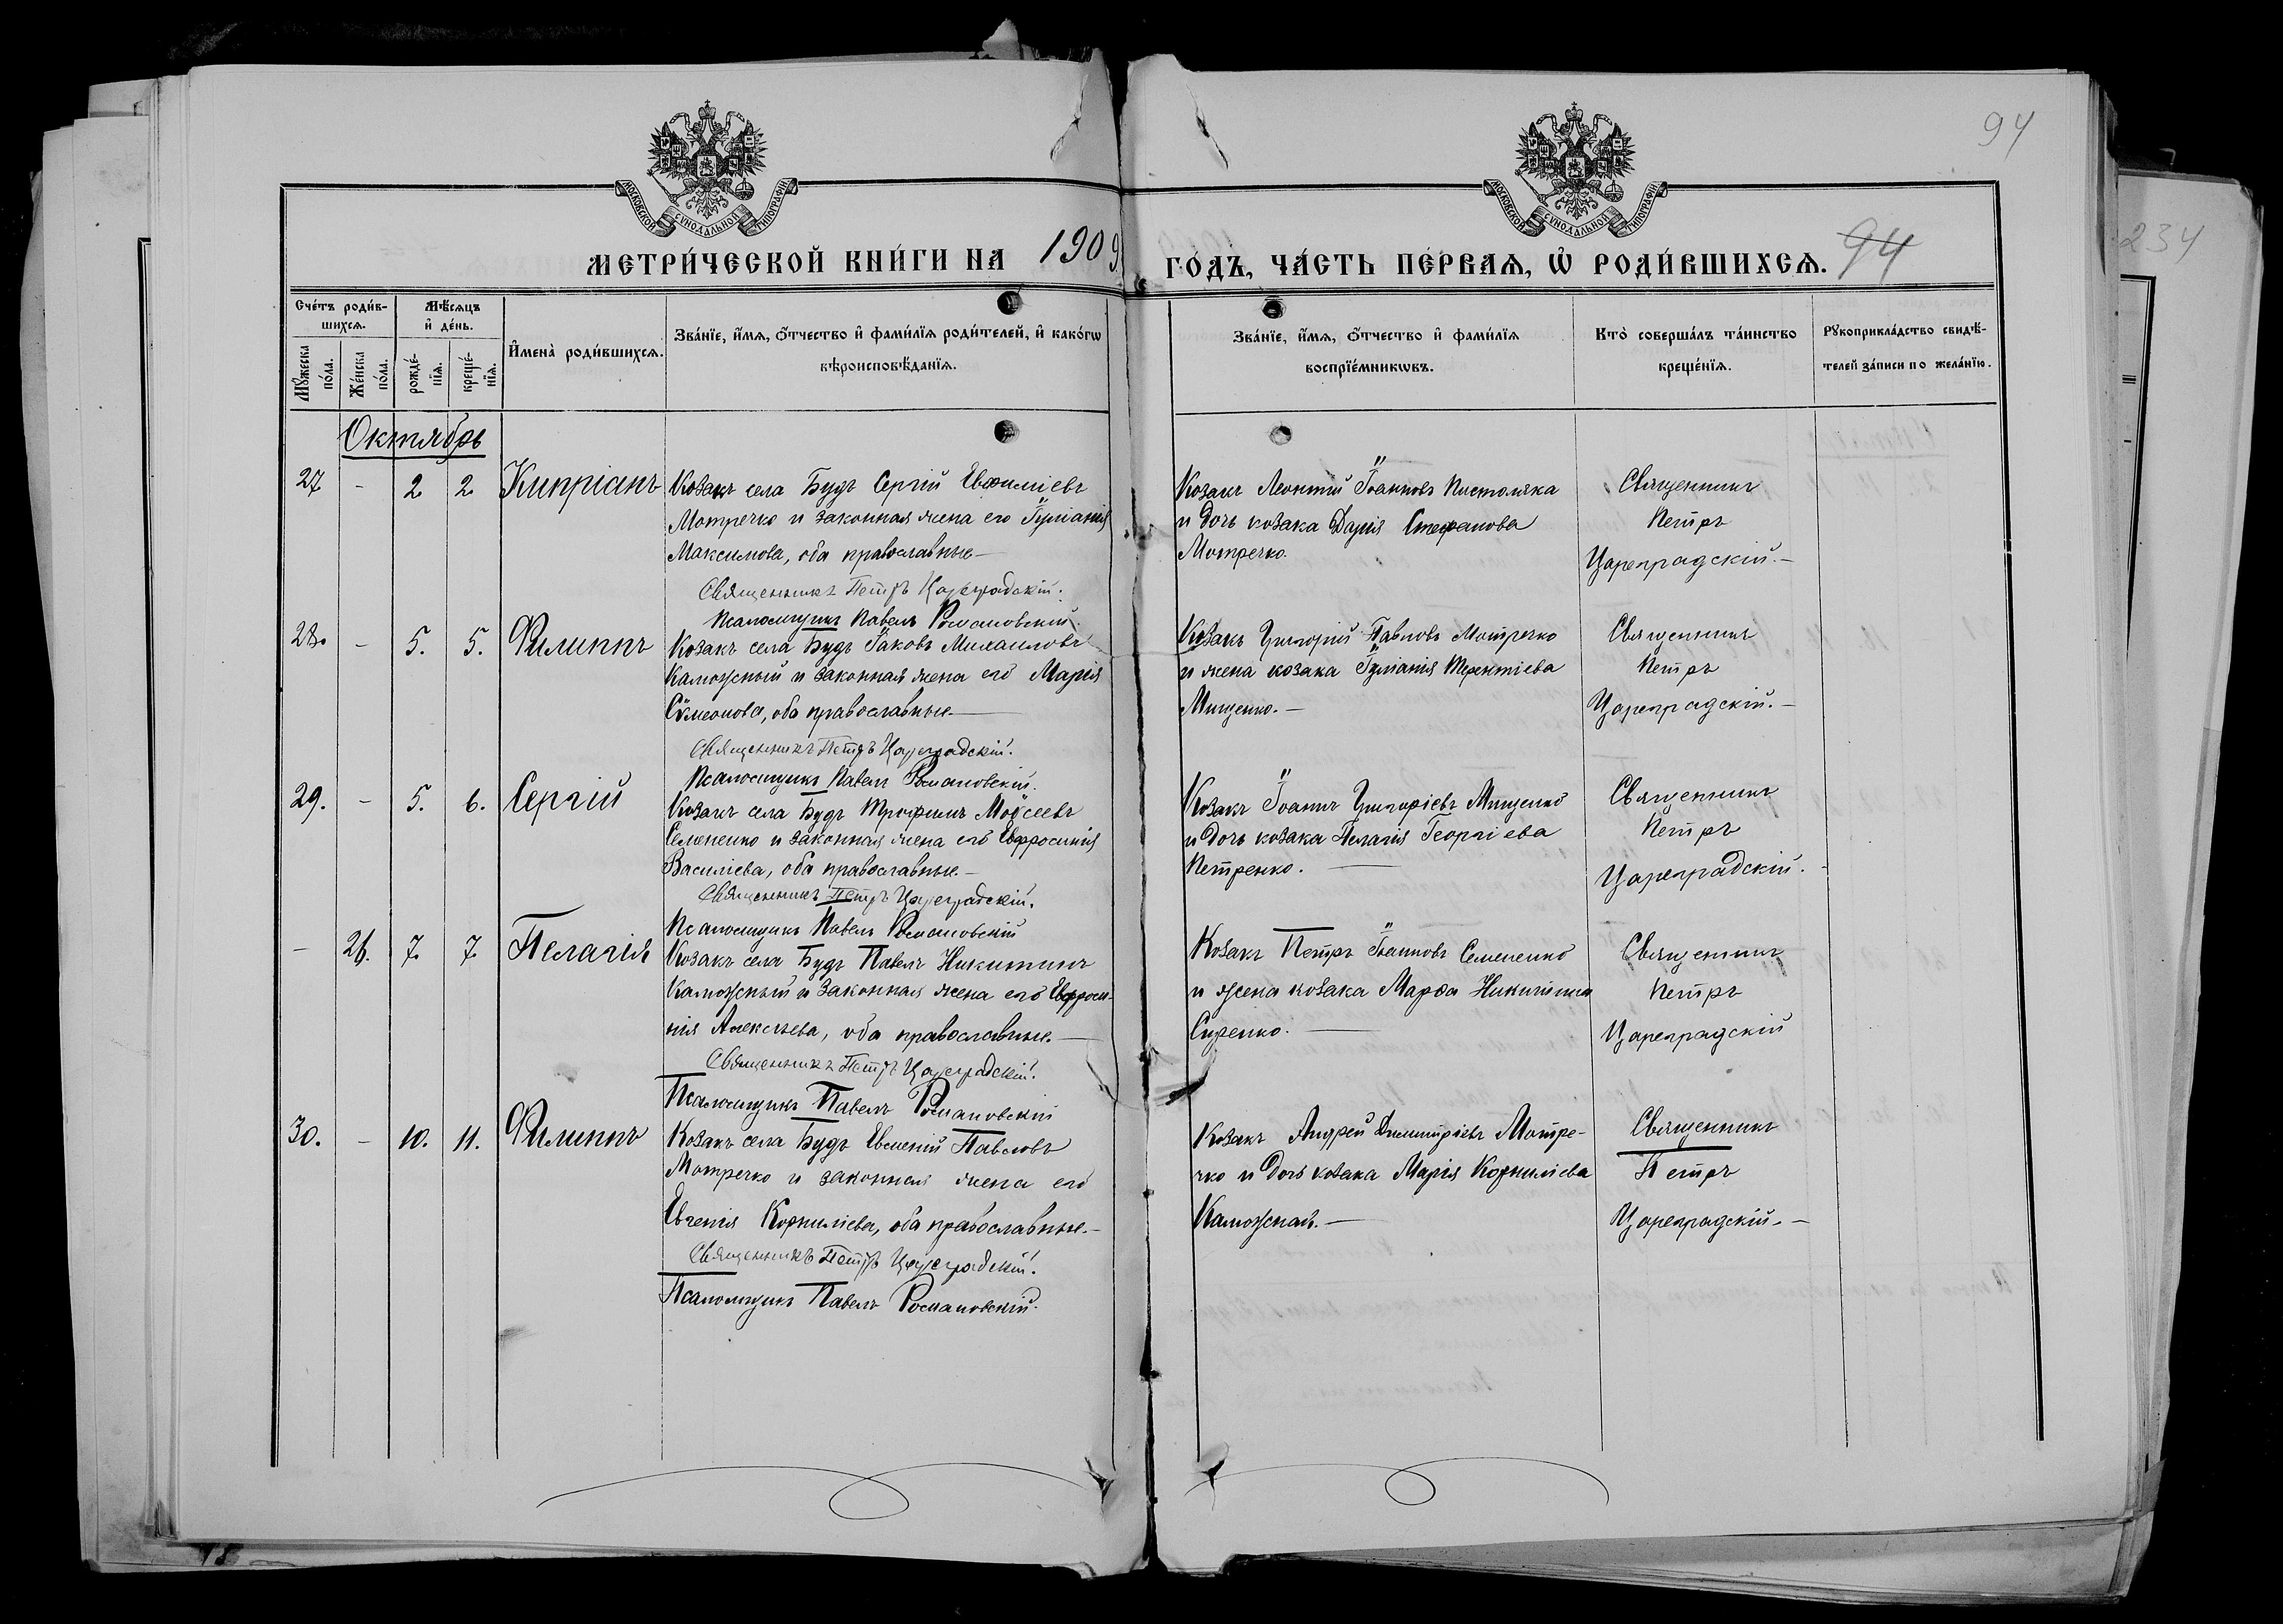 94
МОСКОВСКОЙ СУНОДАЛЬНОЙ ТИПОГРАФІИ
МОСКОВСКОЙ СУНОДАЛЬНОЙ ТИПОГРАФІИ
МЕТРИ́ЧЕСКОЙ КНИ́ГИ НА 1909 ГО́ДЪ, ЧА́СТЬ ПЕ́РВАѦ, Ѡ РОДИ́ВШИХСѦ. 94
234
Сче́тъ роди́в-
шихсѧ.
Мꙋ́жеска
по́ла.
Же́нска
по́ла.
Мѣ́сѧцъ
и҆ де́нь.
рожде́-
нїѧ.
креще́-
нїѧ.
И҆мена̀ роди́вшихсѧ.
Зва́нїе, и҆́мѧ, ѻ҆́тчество и҆ фами́лїѧ роди́телей, и҆ како́гѡ
вѣроисповѣ́данїѧ.
Зва́нїе, и҆́мѧ, ѻ҆́тчество и҆ фами́лїѧ
воспрїе́мникѡвъ.
Кто̀ соверша́лъ та́инство
креще́нїѧ.
Рꙋкоприкла́дство свидѣ́-
телей за́писи по жела́нїю.
Октябрь
27 - 2 2 Кипріанъ
Козакъ села Будъ Сергій Евфиміевъ
Мотречко и законная жена его Іуліанія
Максимова, оба православные
Священникъ Петръ Цареградскій.
Псаломщикъ Павелъ Романовскій.
Козакъ Леонтій Іоанновъ Пистоляка
и дочь козака Дарія Стефанова
Мотречко.
Священникъ
Петръ
Цареградскій.
28. - 5. 5. Филиппъ
Козакъ села Будъ Іаковъ Михаиловъ
Каложный и законная жена его Марія
Сѵмеонова, оба православные
Священникъ Петръ Цареградскій.
Псаломщикъ Павелъ Романовскій.
Козакъ Григорій Павловъ Мотречко
и жена козака Іуліанія Терентіева
Мищенко.
Священникъ
Петръ
Цареградскій.
29. - 5. 6. Сергій
Козакъ села Будъ Трофимъ Моѵсеевъ
Семененко и законная жена его Евфросинія
Василіева, оба православные
Священникъ Петръ Цареградскій.
Псаломщикъ Павелъ Романовскій
Козакъ Іоаннъ Григоріевъ Мищенко
и дочь козака Пелагія Георгіева
Петренко.
Священникъ
Петръ
Цареградскій.
- 26. 7. 7. Пелагія
Козакъ села Будъ Павелъ Никитинъ
Каложный и законная жена его Евфроси-
нія Алексѣева, оба православные.
Священникъ Петръ Цареградскій.
Псаломщикъ Павелъ Романовскій
Козакъ Петръ Іоанновъ Семененко
и жена козака Марѳа Никитина
Священникъ
Петръ
Цареградскій
30. - 10. 11. Филиппъ
Козакъ села Будъ Евменій Павловъ
Мотречко и законная жена его
Евгенія Корниліева, оба православные.
Священникъ Петръ Цареградскій.
Псаломщикъ Павелъ Романовскій.
Козакъ Андрей Димитріевъ Мотре-
чко и дочь козака Марія Корниліева
Каложная.
Священникъ
Петръ
Цареградскій.